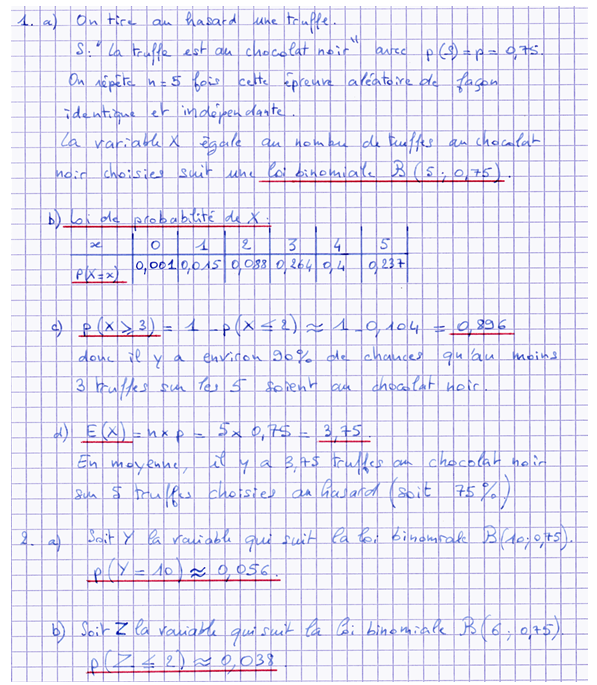 1. a) On tire au hasard une truffe.
S: "La truffe est au chocolat noir" avec p(S) = p = 0,75.
On répète n = 5 fois cette épreuve aléatoire de façon
identique et indépendante.
La variable X égale au nombre de truffes au chocolat
noir choisies suit une loi binomiale B(5 ; 0,75).
b) Loi de probabilité de X :
x 0 1 2 3 4 5
P(X=x) 0,001 0,015 0,088 0,264 0,4 0,237
c) p(X ⩾ 3) = 1 - p(X ⩽ 2) ≈ 1 - 0,104 = 0,896
donc il y a environ 90% de chances qu'au moins
3 truffes sur les 5 soient au chocolat noir.
d) E(X) = n × p = 5 × 0,75 = 3,75.
En moyenne, il y a 3,75 truffes au chocolat noir
sur 5 truffes choisies au hasard (soit 75%)
2. a) Soit Y la variable qui suit la loi binomiale B(10 ; 0,75).
p(Y = 10) ≈ 0,056.
b) Soit Z la variable qui suit la loi binomiale B(6 ; 0,75).
p(Z ⩽ 2) ≈ 0,038.